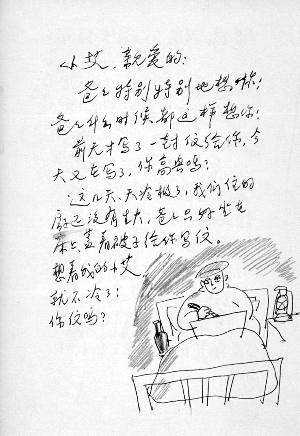 小艾，亲爱的：
爸爸特别特别地想你！
爸爸什么时候都这样想你！
前天才写了一封信给你，今
天又在写了，你高兴吗？
这几天，天冷极了，我们住的
房还没有生火，爸爸只好坐在
床上盖着被子给你写信。
想着我的小艾，
就不冷了！
你信吗？